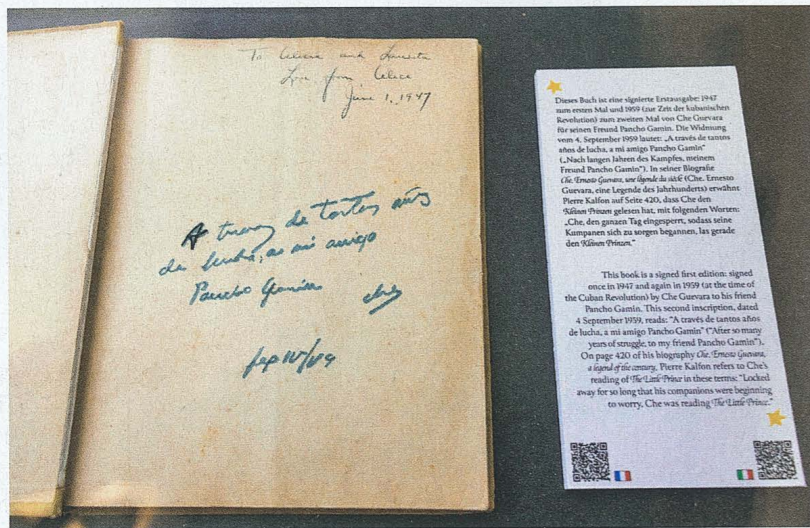 To Alicia and
Love from Alice
June 1, 1947
A traves de tantos años
de lucha, a mi amigo
Pancho Gamin
che
sep IV/
Dieses Buch ist eine signierte Erstausgabe: 1947
zum ersten Mal und 1959 (zur Zeit der kubanischen
Revolution) zum zweiten Mal von Che Guevara
für seinen Freund Pancho Gamin. Die Widmung
vom 4. September 1959 lautet: „A través de tantos
años de lucha, a mi amigo Pancho Gamin“
(„Nach langen Jahren des Kampfes, meinem
Freund Pancho Gamin“). In seiner Biografie
Che. Ernesto Guevara, une légende du siècle (Che. Ernesto
Guevara, eine Legende des Jahrhunderts) erwähnt
Pierre Kalfon auf Seite 420, dass Che den
Kleinen Prinzen gelesen hat, mit folgenden Worten:
„Che, den ganzen Tag eingesperrt, sodass seine
Kumpanen sich zu sorgen begannen, las gerade
den Kleinen Prinzen.“
This book is a signed first edition: signed
once in 1947 and again in 1959 (at the time of
the Cuban Revolution) by Che Guevara to his friend
Pancho Gamin. This second inscription, dated
4 September 1959, reads: “A través de tantos años
de lucha, a mi amigo Pancho Gamin” (“After so many
years of struggle, to my friend Pancho Gamin”).
On page 420 of his biography Che. Ernesto Guevara,
a legend of the century, Pierre Kalfon refers to Che's
reading of The Little Prince in these terms: “Locked
away for so long that his companions were beginning
to worry, Che was reading The Little Prince.”